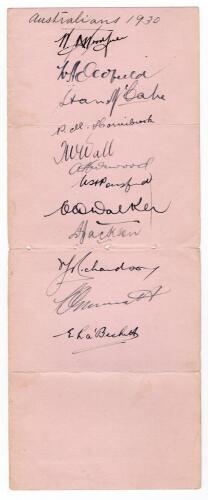 Australians 1930
W M Woodfull
W A Oldfield
Stan McCabe
P. M. Hornibrook
T W Wall
A Hurwood
W H Ponsford
C W Walker
A Jackson
V Y Richardson
C V Grimmett
E L a'Beckett